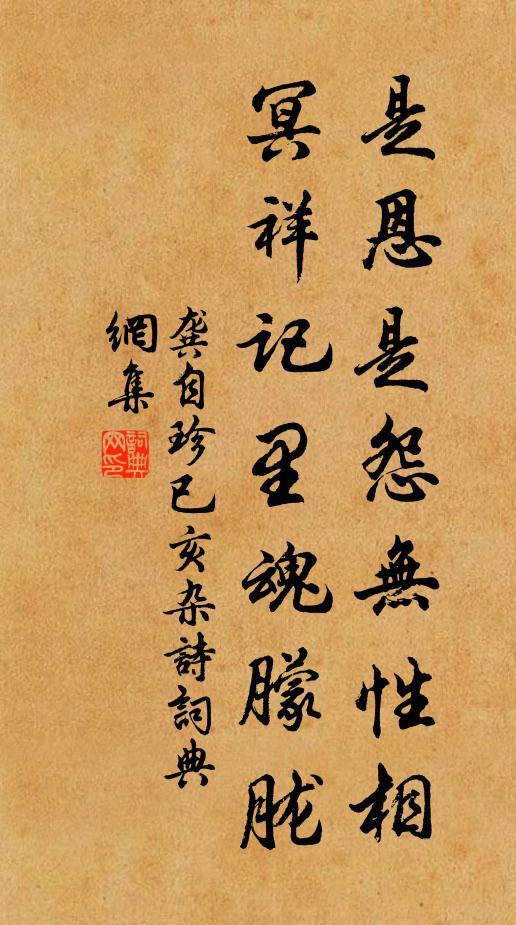 是恩是怨無性相
冥祥記里魂朦朧
龔自珍己亥杂詩詞典
網集
詞典
网印